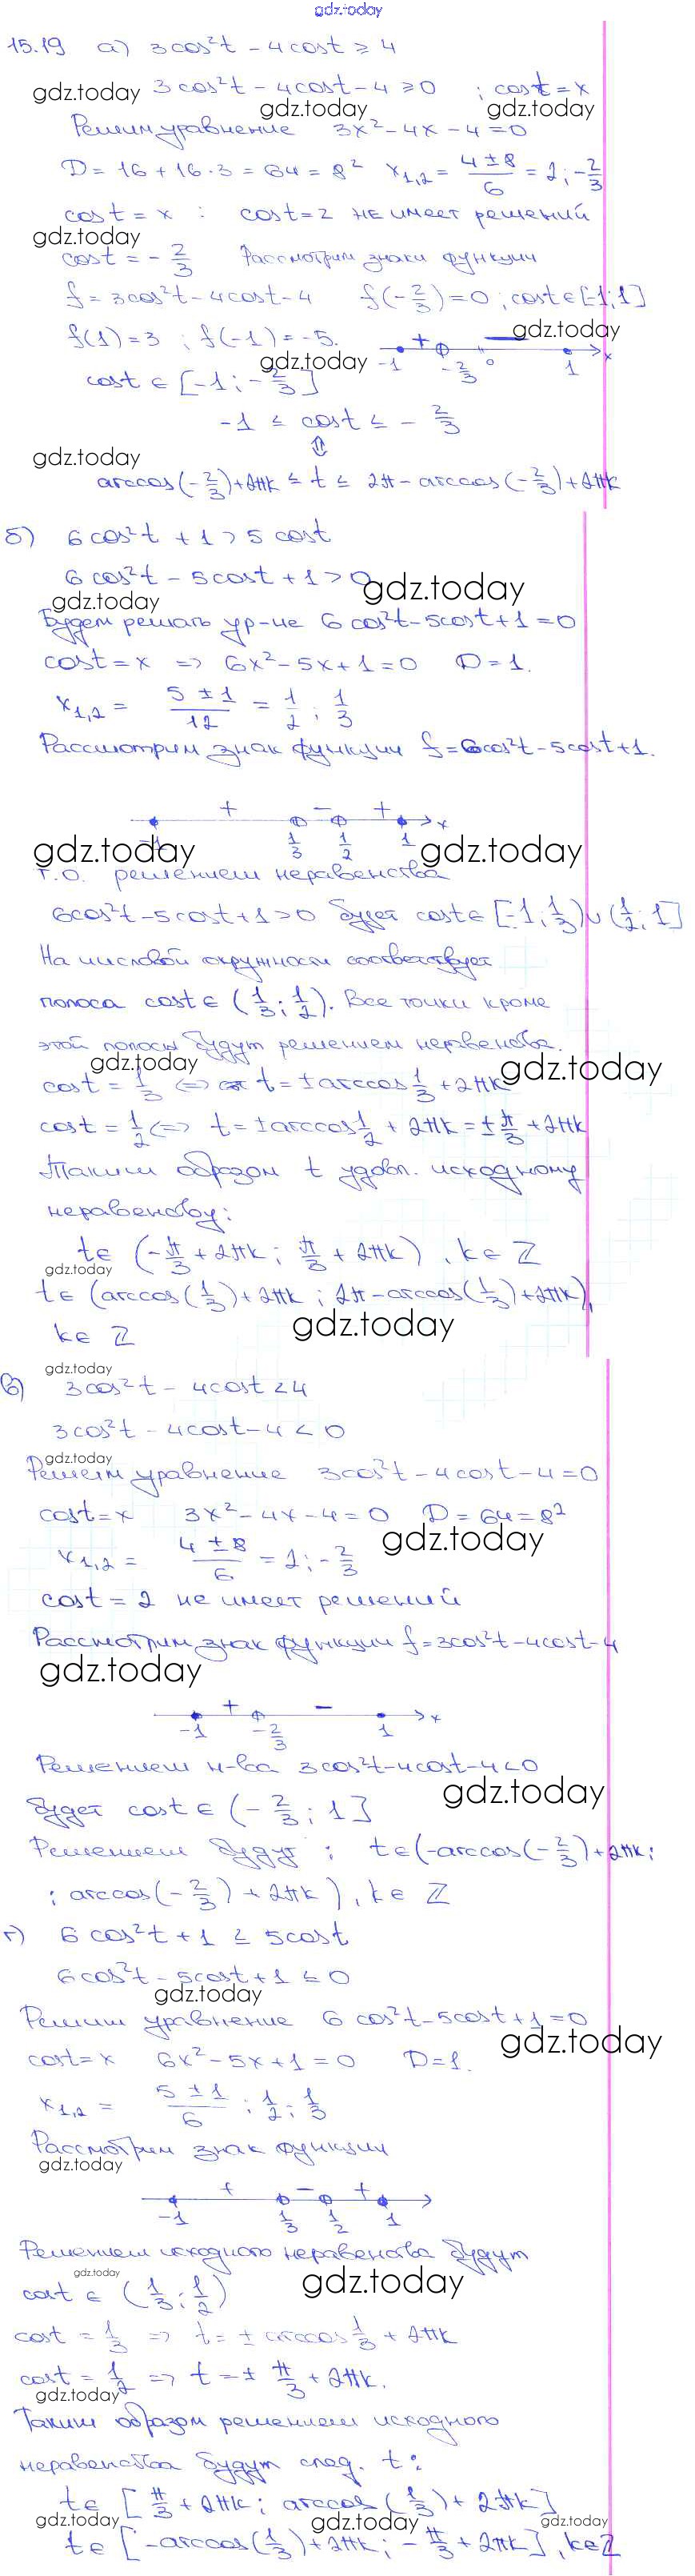 gdz.today
15.19 а) 3cos²t - 4cost ≥ 4
3cos²t - 4cost - 4 ≥ 0 ; cost = x
gdz.today gdz.today gdz.today
Решим уравнение 3x² - 4x - 4 = 0
D = 16 + 16·3 = 64 = 8² x₁,₂ = (4 ± 8)/6 = 2; -2/3
cost = x : cost = 2 не имеет решений
gdz.today
cost = -2/3 Рассмотрим знаки функции
f = 3cos²t - 4cost - 4 f(-2/3) = 0 ; cost ∈ [-1; 1]
gdz.today
f(1) = 3 ; f(-1) = -5.
+ −
-1 -2/3 0 1 x
gdz.today
cost ∈ [-1; -2/3]
-1 ≤ cost ≤ -2/3
⇕
gdz.today
arccos(-2/3) + 2πk ≤ t ≤ 2π - arccos(-2/3) + 2πk
б) 6cos²t + 1 > 5cost
6cos²t - 5cost + 1 > 0
gdz.today gdz.today
Будем решать ур-ие 6cos²t - 5cost + 1 = 0
cost = x => 6x² - 5x + 1 = 0 D = 1.
x₁,₂ = (5 ± 1)/12 = 1/2 ; 1/3
Рассмотрим знак функции f = 6cos²t - 5cost + 1.
+ − +
-1 1/3 1/2 1 x
gdz.today gdz.today
т.о. решением неравенства
6cos²t - 5cost + 1 > 0 будет cost ∈ [-1; 1/3) ∪ (1/2; 1]
На числовой окружности соответствует
полоса cost ∈ (1/3; 1/2). Все точки кроме
этой полосы будут решением неравенства.
gdz.today gdz.today
cost = 1/3 <=> t = ± arccos 1/3 + 2πk
cost = 1/2 <=> t = ± arccos 1/2 + 2πk = ± π/3 + 2πk
Таким образом t удовл. исходному
неравенству:
t ∈ (-π/3 + 2πk ; π/3 + 2πk), k ∈ Z
gdz.today
t ∈ (arccos(1/3) + 2πk ; 2π - arccos(1/3) + 2πk),
gdz.today
k ∈ Z
gdz.today
в) 3cos²t - 4cost < 4
3cos²t - 4cost - 4 < 0
gdz.today
Решим уравнение 3cos²t - 4cost - 4 = 0
cost = x 3x² - 4x - 4 = 0 D = 64 = 8²
gdz.today
x₁,₂ = (4 ± 8)/6 = 2; -2/3
cost = 2 не имеет решений
Рассмотрим знак функции f = 3cos²t - 4cost - 4
gdz.today
+ −
-1 -2/3 1 x
Решением н-ва 3cos²t - 4cost - 4 < 0
gdz.today
будет cost ∈ (-2/3; 1]
Решением будут : t ∈ (-arccos(-2/3) + 2πk ;
; arccos(-2/3) + 2πk), k ∈ Z
г) 6cos²t + 1 ≤ 5cost
6cos²t - 5cost + 1 ≤ 0
gdz.today
Решим уравнение 6cos²t - 5cost + 1 = 0
gdz.today
cost = x 6x² - 5x + 1 = 0 D = 1.
x₁,₂ = (5 ± 1)/6 ; 1/2 ; 1/3
Рассмотрим знак функции
gdz.today
+ − +
-1 1/3 1/2 1
Решением исходного неравенства будут
gdz.today gdz.today
cost ∈ (1/3; 1/2)
cost = 1/3 => t = ± arccos 1/3 + 2πk
cost = 1/2 => t = ± π/3 + 2πk.
gdz.today
Таким образом решением исходного
неравенства будут след. t:
t ∈ [π/3 + 2πk ; arccos(1/3) + 2πk]
gdz.today gdz.today gdz.today
t ∈ [-arccos(1/3) + 2πk ; -π/3 + 2πk], k ∈ Z